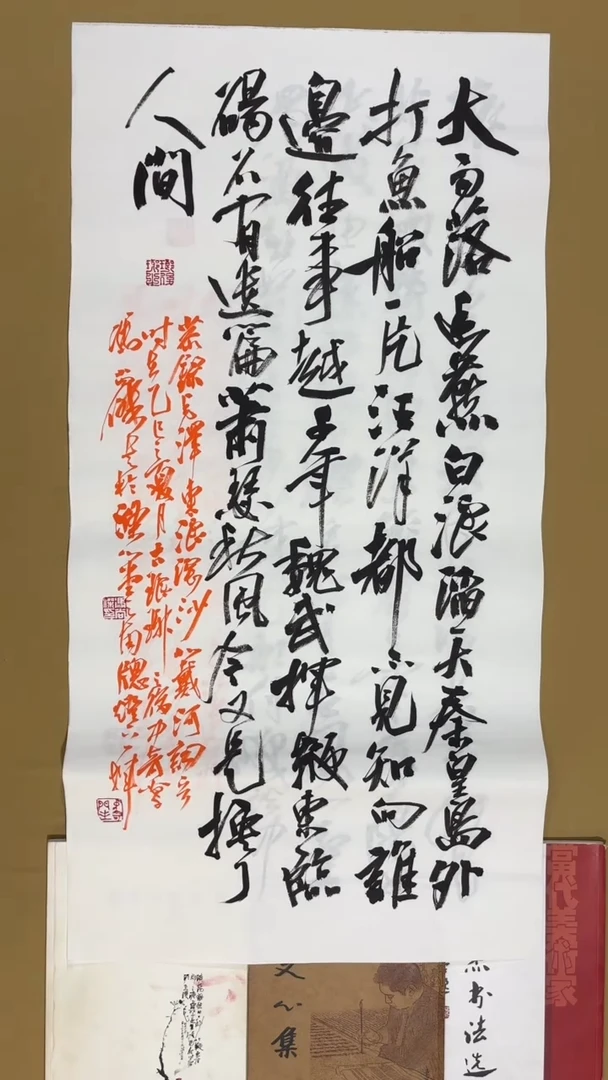 大雨落幽燕白浪滔天秦皇島外
打魚船一片汪洋都不見知向誰
邊往事越千年魏武揮鞭東臨
碣石有遺篇蕭瑟秋風今又是換了
人間
恭錄毛澤東浪淘沙北戴河詞
時在乙巳之夏月古
於南窗
文心集
书法选
美術家